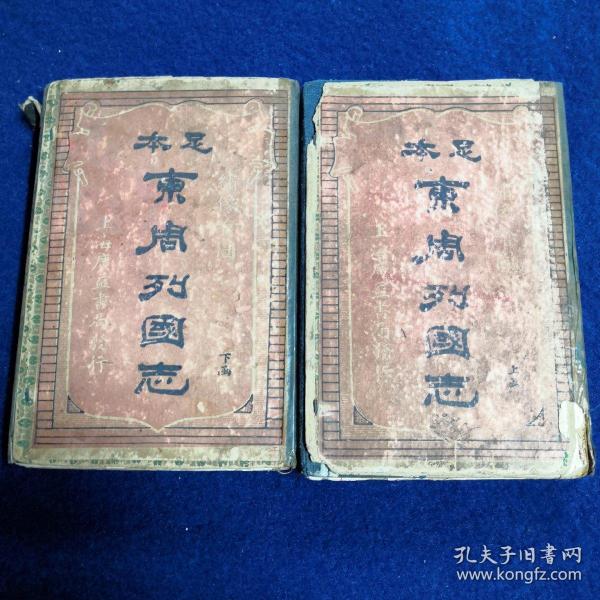 足本
東周列國志
上海廣益書局發行
下函
足本
東周列國志
上函
孔夫子旧书网
www.kongfz.com